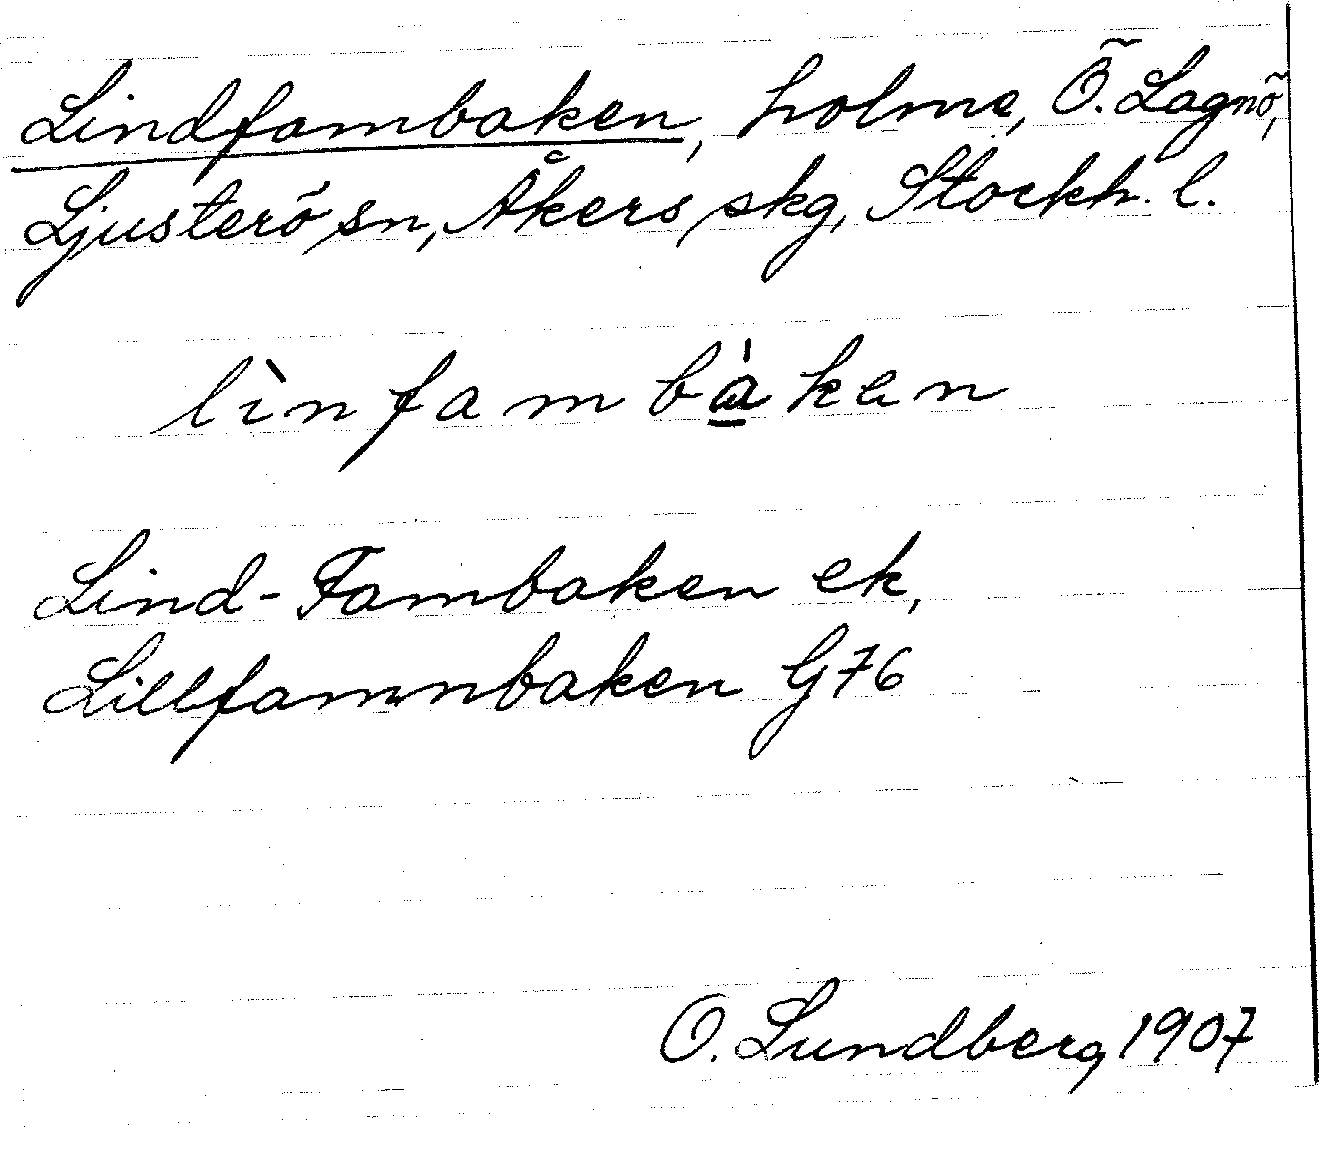 Lindfambaken, holme, Ö. Lagnö,
Ljusterö sn, Åkers skg, Stockh. l.
lìnfambà̱ken
Lind-Fambaken ek,
Lillfamnbaken G76
O. Lundberg 1907